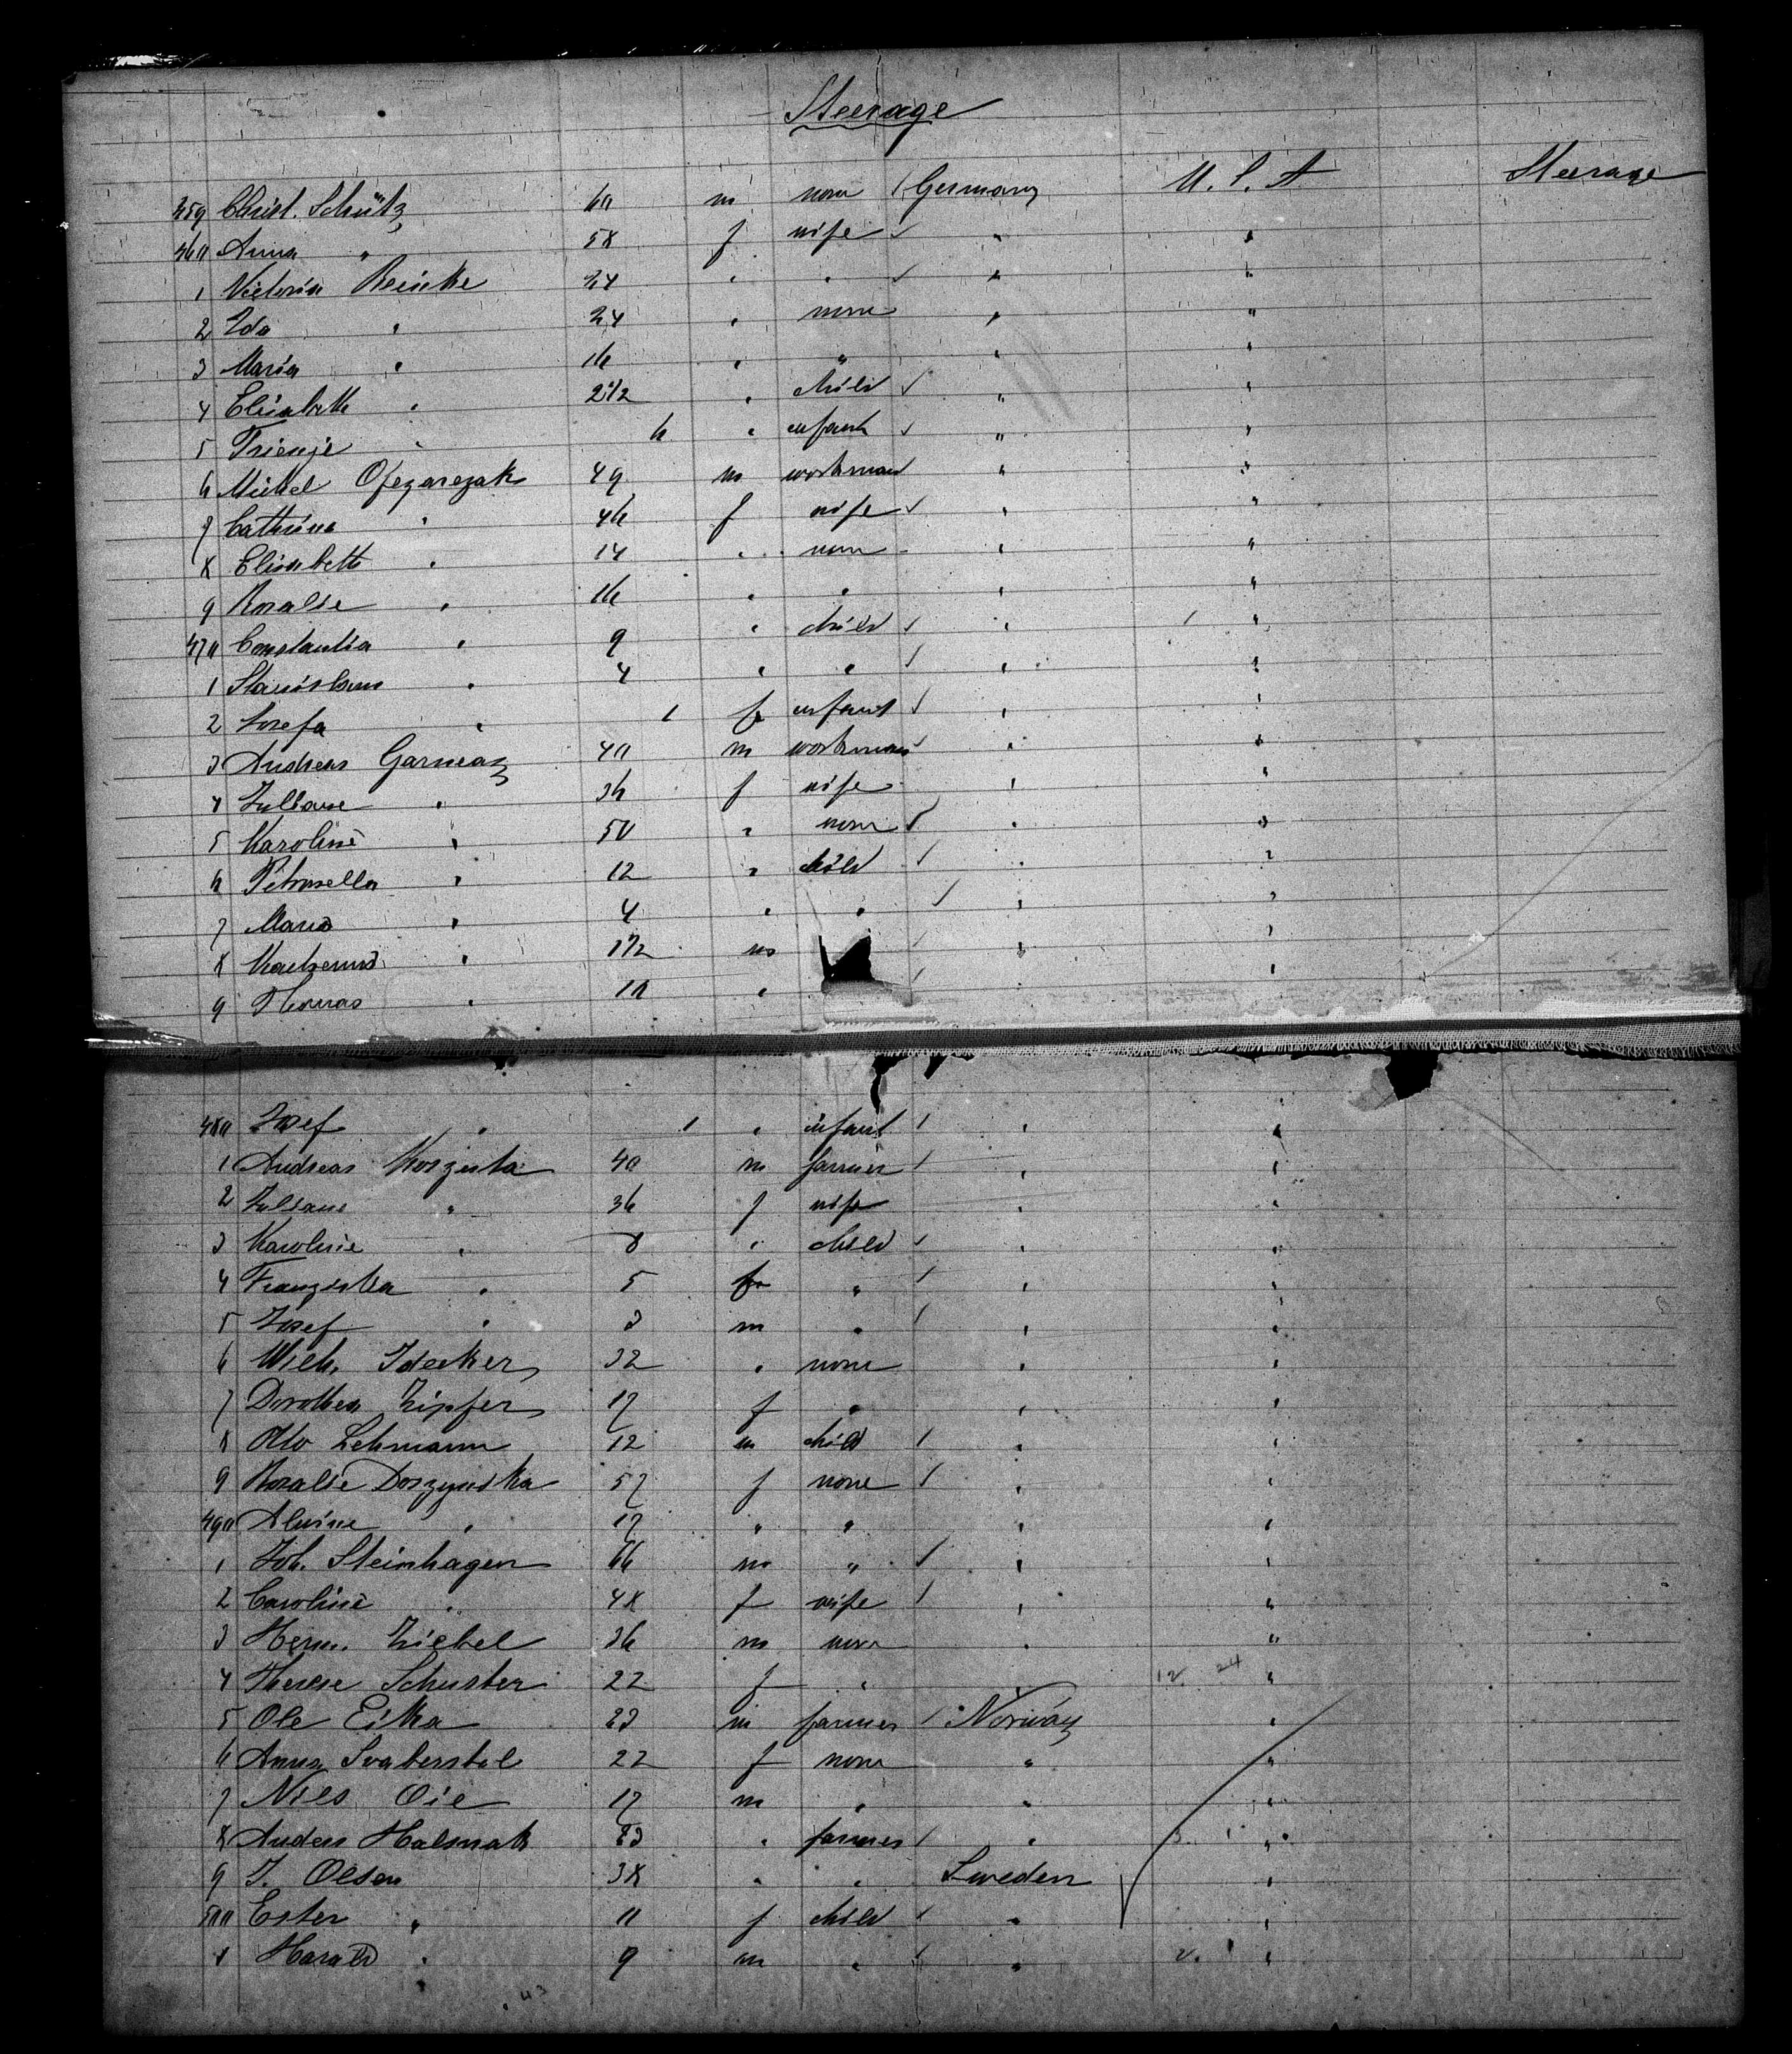 Steerage
459 Christ. Schütz 60 m none Germany U. S. A Steerage
460 Anna " 58 f wife " "
1 Victoria Reinke 24 " " " "
2 Ida " 24 " none " "
3 Maria " 16 " " " "
4 Elisabeth " 2 1/2 " child " "
5 Trienje " 6 " infant " "
6 Michel 49 m workman " "
7 Cathrina " 46 f wife " "
8 Elisabeth " 14 " none " "
9 Rosalie " 16 " " " "
470 Constantia " 9 " child " "
1 Stanislaus " 4 " " " "
2 Josefa " 1 f infant " "
3 Andreas 40 m workman " "
4 Juliane " 36 f wife " "
5 Karoline " 50 " none " "
6 Petronella " 12 " child " "
7 Maria " 4 " " " "
8 " 1 1/2 m " "
9 Thomas " 10 " " "
480 Josef " 1 " infant " "
1 Andreas 40 m farmer " "
2 Juliane " 36 f wife " "
3 Karoline " 8 " child " "
4 Franziska " 5 f " " "
5 Josef " 3 m " " "
6 Wilh. Idecker 32 " none " "
7 Dorothea Zipfer 17 f " " "
8 Otto Lehmann 12 m child " "
9 Rosalie Doszynska 57 f none " "
490 Alwine " 17 " " " "
1 Joh. Steinhagen 66 m " " "
2 Caroline " 48 f wife " "
3 Herm. Ziebel 36 m none " "
4 Therese Schuster 22 f " 12 24 "
5 Ole Eika 23 m farmer Norway "
6 Anna 22 f none " "
7 Nils Oie 17 m " " "
8 Anders 23 " farmer " "
9 J. Olsen 38 " " Sweden "
500 Ester " 11 f child " "
1 Harald " 9 m " " "
43